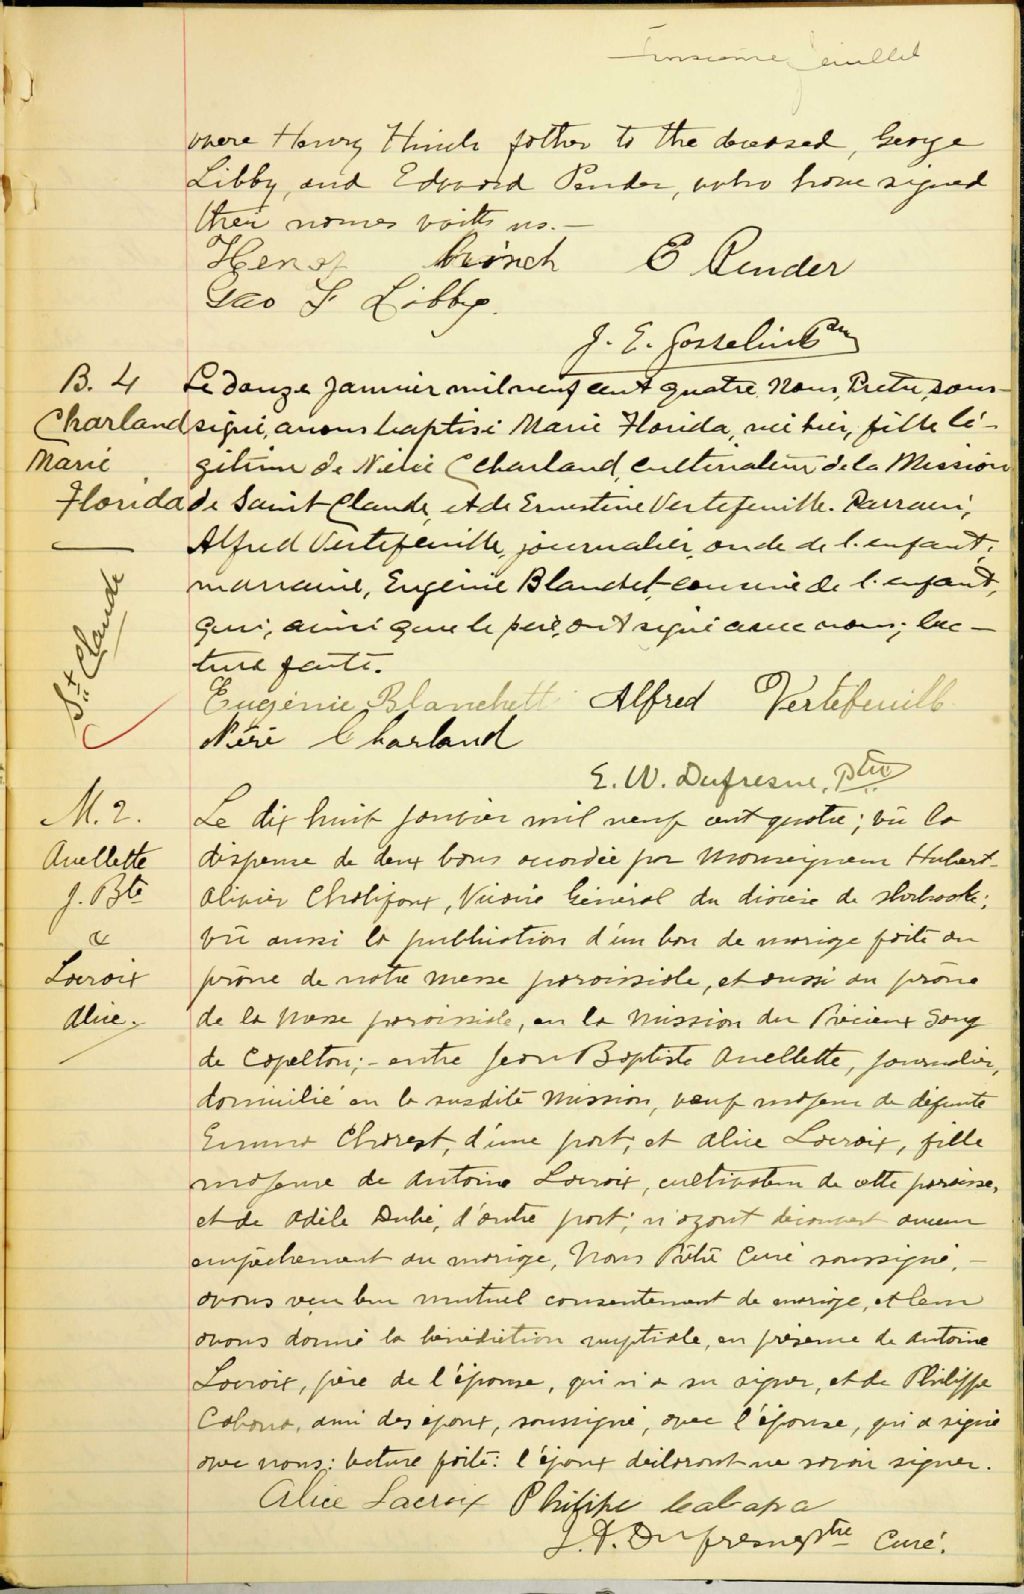 Troisième feuillet
were Henry Hinch father to the deceased, George
Libby, and Edward Pender, who have signed
their names with us.—
Henry Hinch E Pender
Geo F Libby.
J. E. Gosselin Ptre
B. 4
Charland
Marie
Florida
St Claude
Le douze Janvier mil neuf cent quatre, Nous, Prêtre, sous-
signé, avons baptisé Marie Florida, née hier, fille lé-
gitime de Néré Charland, cultivateur de la Mission
de Saint Claude, et de Ernestine Vertefeuille. Parrain,
Alfred Vertefeuille, journalier, oncle de l'enfant;
marraine, Eugénie Blanchet, cousine de l'enfant,
qui, ainsi que le père, ont signé avec nous; lec-
ture faite.
Eugénie Blanchett Alfred Vertefeuille
Néré Charland
E. W. Dufresne, Ptre
M. 2.
Ouellette
J. Bte
&
Lacroix
Alice.
Le dix huit janvier mil neuf cent quatre; vû la
dispense de deux bans accordée par Monseigneur Hubert-
Olivier Chalifoux, Vicaire Général du diocèse de Sherbrooke;
vû aussi la publication d'un ban de mariage faite au
prône de notre messe paroissiale, et aussi au prône
de la messe paroissiale, en la mission du Précieux Sang
de Capelton;- entre Jean Baptiste Ouellette, journalier,
domicilié en la susdite mission, veuf majeur de défunte
Emma Chorest, d'une part; et Alice Lacroix, fille
majeure de Antoine Lacroix, cultivateur de cette paroisse,
et de Adèle Dubé, d'autre part; n'ayant découvert aucun
empêchement au mariage, Nous Prêtre Curé soussigné,-
avons reçu leur mutuel consentement de mariage, et leur
avons donné la bénédiction nuptiale, en présence de Antoine
Lacroix, père de l'épouse, qui n'a su signer, et de Philippe
Cabana, ami des époux, soussigné, avec l'épouse, qui a signé
avec nous: lecture faite: l'époux déclarant ne savoir signer.
Alice Lacroix Philipe Cabana
J. A. Dufresne ptre Curé.